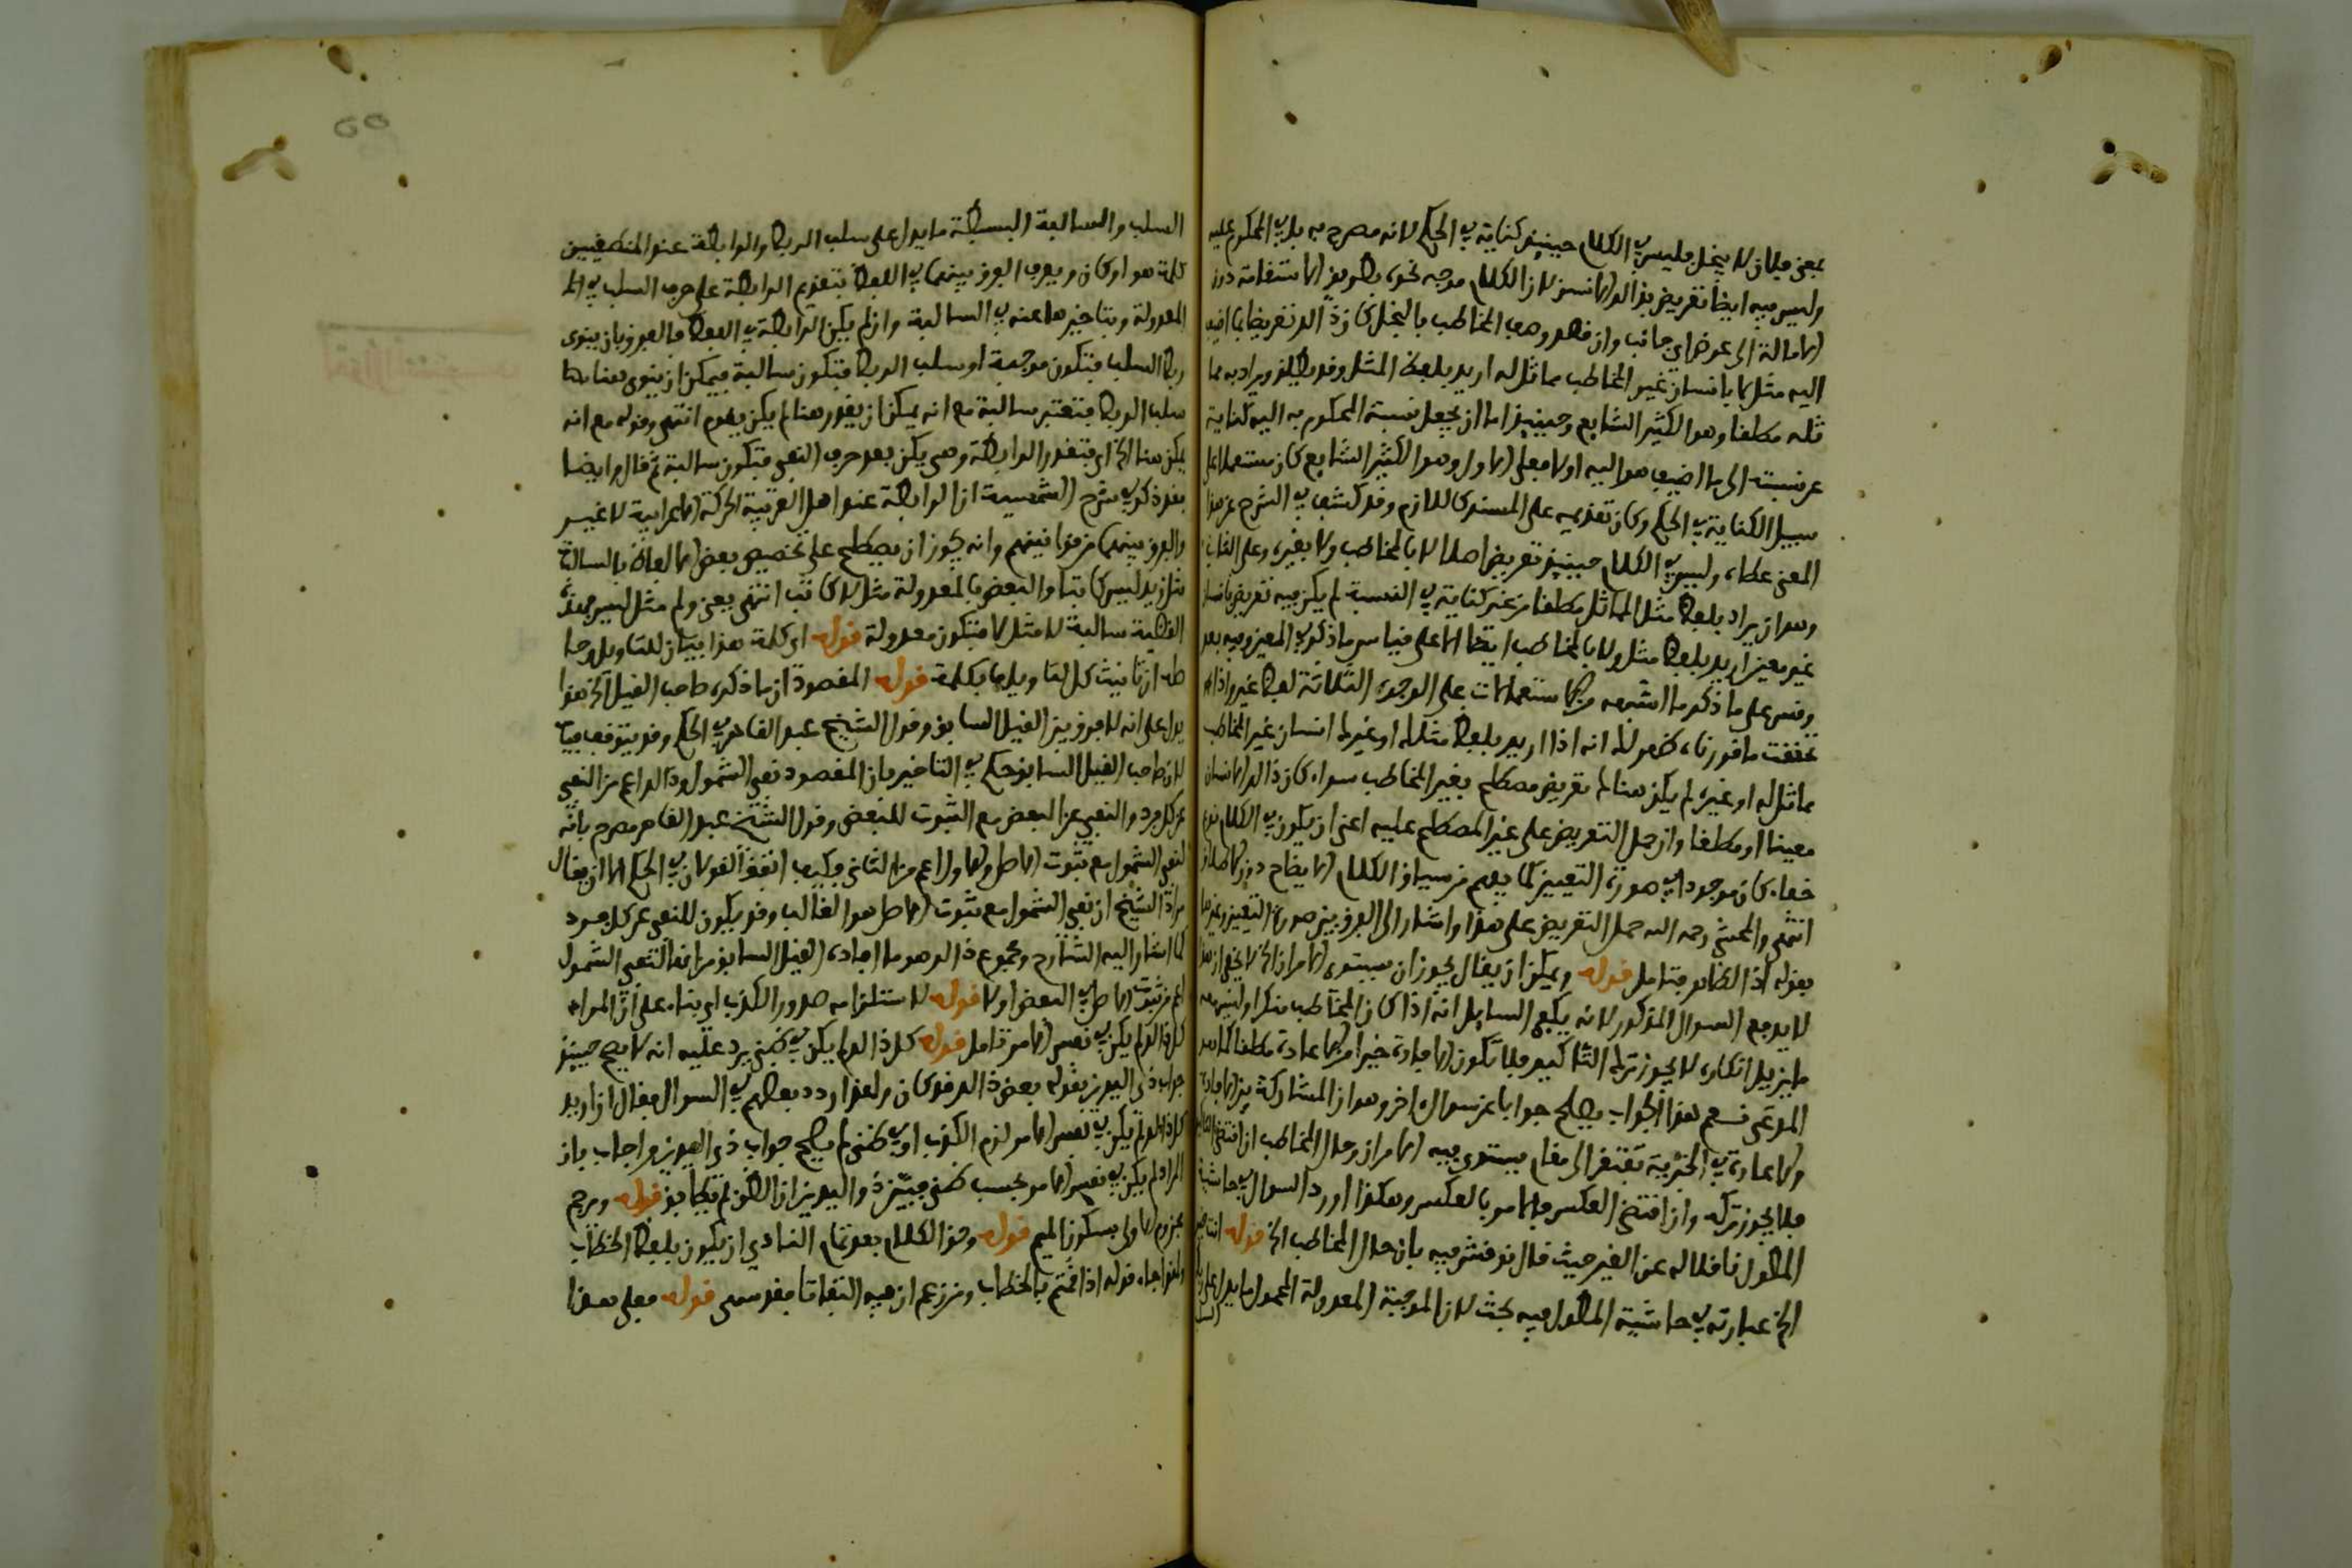 بمعنى فلان لا يبخل فليس في الكلام حينئذ كناية في الحكم لانه مصرح به بل في المحكوم عليه
وليس فيه ايضا تعريض بذالك الانسان لان الكلام موجه نحوه بطريق الاستقامة دون
الامالة الى عرض اي جانب وان قصد وصف المخاطب بالبخل كان ذالك تعريضا بما اضيف
اليه مثل لا بانسان غير المخاطب مماثل له اريد بلفظ المثل وقد يطلق ويراد به مما
ثله مطلقا وهو الكثير الشايع وحينئذ اما ان يجعل نسبة المحكوم به اليه كناية
عن نسبته الى ما اضيف هو اليه اولا فعلى الاول وهو الكثير الشايع كان مستعملا على
سبيل الكناية في الحكم وكان تقديمه على المسند كاللازم وقد كشف في الشرح عن هذا
المعنى غطاءه وليس في الكلام حينئذ تعريض اصلا لا بالمخاطب ولا بغيره وعلى الثاني
وهو ان يراد بلفظ مثل المماثل مطلقا من غير كناية في النسبة لم يكن فيه تعريض بانسان
غير معين اريد بلفظ مثل ولا بالمخاطب ايضا الا على قياس ما ذكر في المعين وفيه بعد
وقس على ما ذكر ما اشبهه من استعمالات على الوجوه الثلاثة لفظ غير واذا
تحققت ما قررناه ظهر لك انه اذا اريد بلفظ مثلك او غيرك انسان غير المخاطب
مماثل له او غيره لم يكن هناك تعريض مصطلح بغير المخاطب سواء كان ذالك الانسان
معينا او مطلقا وان حمل التعريض على غير المصطلح عليه اعني ان يكون في الكلام نوع
خفاء كان موجودا في صورة التعيين كما يفهم من سياق الكلام الايضاح دون الاطلاق
انتهى والمحشي رحمه الله حمل التعريض على هذا واشار الى الفرق بين صورة التعيين وغيرها
بقوله اذ الظاهر فتامل قوله ويمكن ان يقال يجوز ان يستوي الامران الخ لا يخفى ان هذا
لا يدفع السوال المذكور لانه يكفي السايل انه اذا كان المخاطب منكرا وليس معه
ما يزيل انكاره لا يجوز ترك التاكيد فلا تكون الافادة خيرا من الاعادة مطلقا كما هو
المدعى نعم هذا الجواب يصلح جوابا عن سوال اخر وهو ان المشاركة بين الافادة
والاعادة في الخيرية تقتضي الى مقام يستوي فيه الامران وحال المخاطب ان اقتضى التاكيد
فلا يجوز تركه وان اقتضى العكس فالامر بالعكس وهكذا اورد السوال في حاشية
المطول ناقلا له عن الغير حيث قال نوقش فيه بان حال المخاطب الخ قوله
الخ عبارته في حاشية المطول فيه بحث لان الموجبة المعدولة المحمول ما يدل على
السلب والسالبة البسيطة ما يدل على سلب الربط والرابطة عند المنطقيين
كلمة هو او كان ويعرف الفرق بينهما في اللفظ بتقديم الرابطة على حرف السلب في
المعدولة وبتاخيرها عنه في السالبة وان لم يكن الرابطة في اللفظ فالفرق بان ينوى
ربط السلب فتكون موجبة او سلب الربط فتكون سالبة فيمكن ان ينوى هنا
سلب الربط فتعتبر سالبة مع انه يمكن ان يقدر هنا لم يكن يقوم انتهى وقوله مع انه
يمكن هنا الخ اي فتقدر الرابطة وهي يكن بعد حرف النفي فتكون سالبة ثم قال وايضا
فقد ذكر في شرح الشمسية ان الرابطة عند اهل العربية الحركة الاعرابية لا غير
والفرق بينهما من قوانينهم وانه يجوز ان يصطلح على تخصيص بعض الالفاظ بالسالبة
مثل زيد ليس كاتبا والبعض بالمعدولة مثل لا كاتب انتهى يعني ولم مثل ليس فهذه
القضية سالبة لا مثل لا فتكون معدولة قوله اي كلمة هذا بيان للتاويل وحا
صله ان تانيث كل لتاويلها بكلمة قوله المقصود ان ما ذكره صاحب القيل الخ هذا
يدل على انه لا فرق بين القيل السابق وقول الشيخ عبد القاهر في الحكم وقد يتوقف فيه
لان صاحب القيل السابق حكم في التاخير بان المقصود نفي الشمول وذالك اعم من النفي
عن كل فرد والنفي عن البعض مع الثبوت للبعض وقول الشيخ عبد القاهر مصرح بانه
لنفي الشمول مع ثبوت الاصل والاول اعم من الثاني فكيف اتفق القولان في الحكم الا ان يقال
مراد الشيخ ان نفي الشمول مع ثبوت الاصل هو الغالب وقد يكون للنفي عن كل فرد
كما اشار اليه الشارح ومجموع ذالك هو ما افاده القيل السابق من انه لنفي الشمول
اعم من ثبوت الاصل في البعض اولا قوله لاستلزامه صدور الكذب اي بناء على ان المراد
كل ذالك لم يكن في نفس الامر تامل قوله كل ذالك لم يكن في ظني يرد عليه انه لا يصح حينئذ
جواب ذي اليدين بقوله بعض ذالك قد كان ولهذا ردد بعضهم في السوال فقال ان اريد
كل ذالك لم يكن في نفس الامر لزم الكذب او في ظني لم يصح جواب ذي اليدين واجاب بان
المراد لم يكن في نفس الامر بحسب ظني فبين ذو اليدين ان الظن لم يطابق قوله ومرجم
بجزم الاول بسكون الميم قوله وحق الكلام بعد تمام النادي ان يكون بلفظ الخطاب
ولهذا جاء قوله اذا قمتم بالخطاب ومن زعم ان فيه التفاتا فقد سهى قوله فعلى هذا